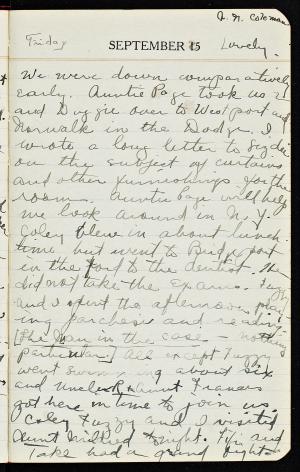 A. N. Coleman
Friday SEPTEMBER 15 Lovely.
We were down comparatively
early. Auntie Page took us 2
and Duggie over to Westport and
Norwalk in the Dodge. I
wrote a long letter to
on the subject of curtains
and other furnishings for the
room. Auntie Page will help
me look around in N.Y.
Coley blew in about lunch
time but went to Bridgeport
in the Ford to the dentist. He
did not take the exams. Fuzzy
and I spent the afternoon play-
ing parchesi and reading
[The Man in the case - nothing
particular] All except Fuzzy
went swimming about six
and Uncle R. & Aunt Frances
got here in time to join us.
Coley Fuzzy and I visited
Aunt Mildred tonight. Fifi and
Jake had a grand fight.